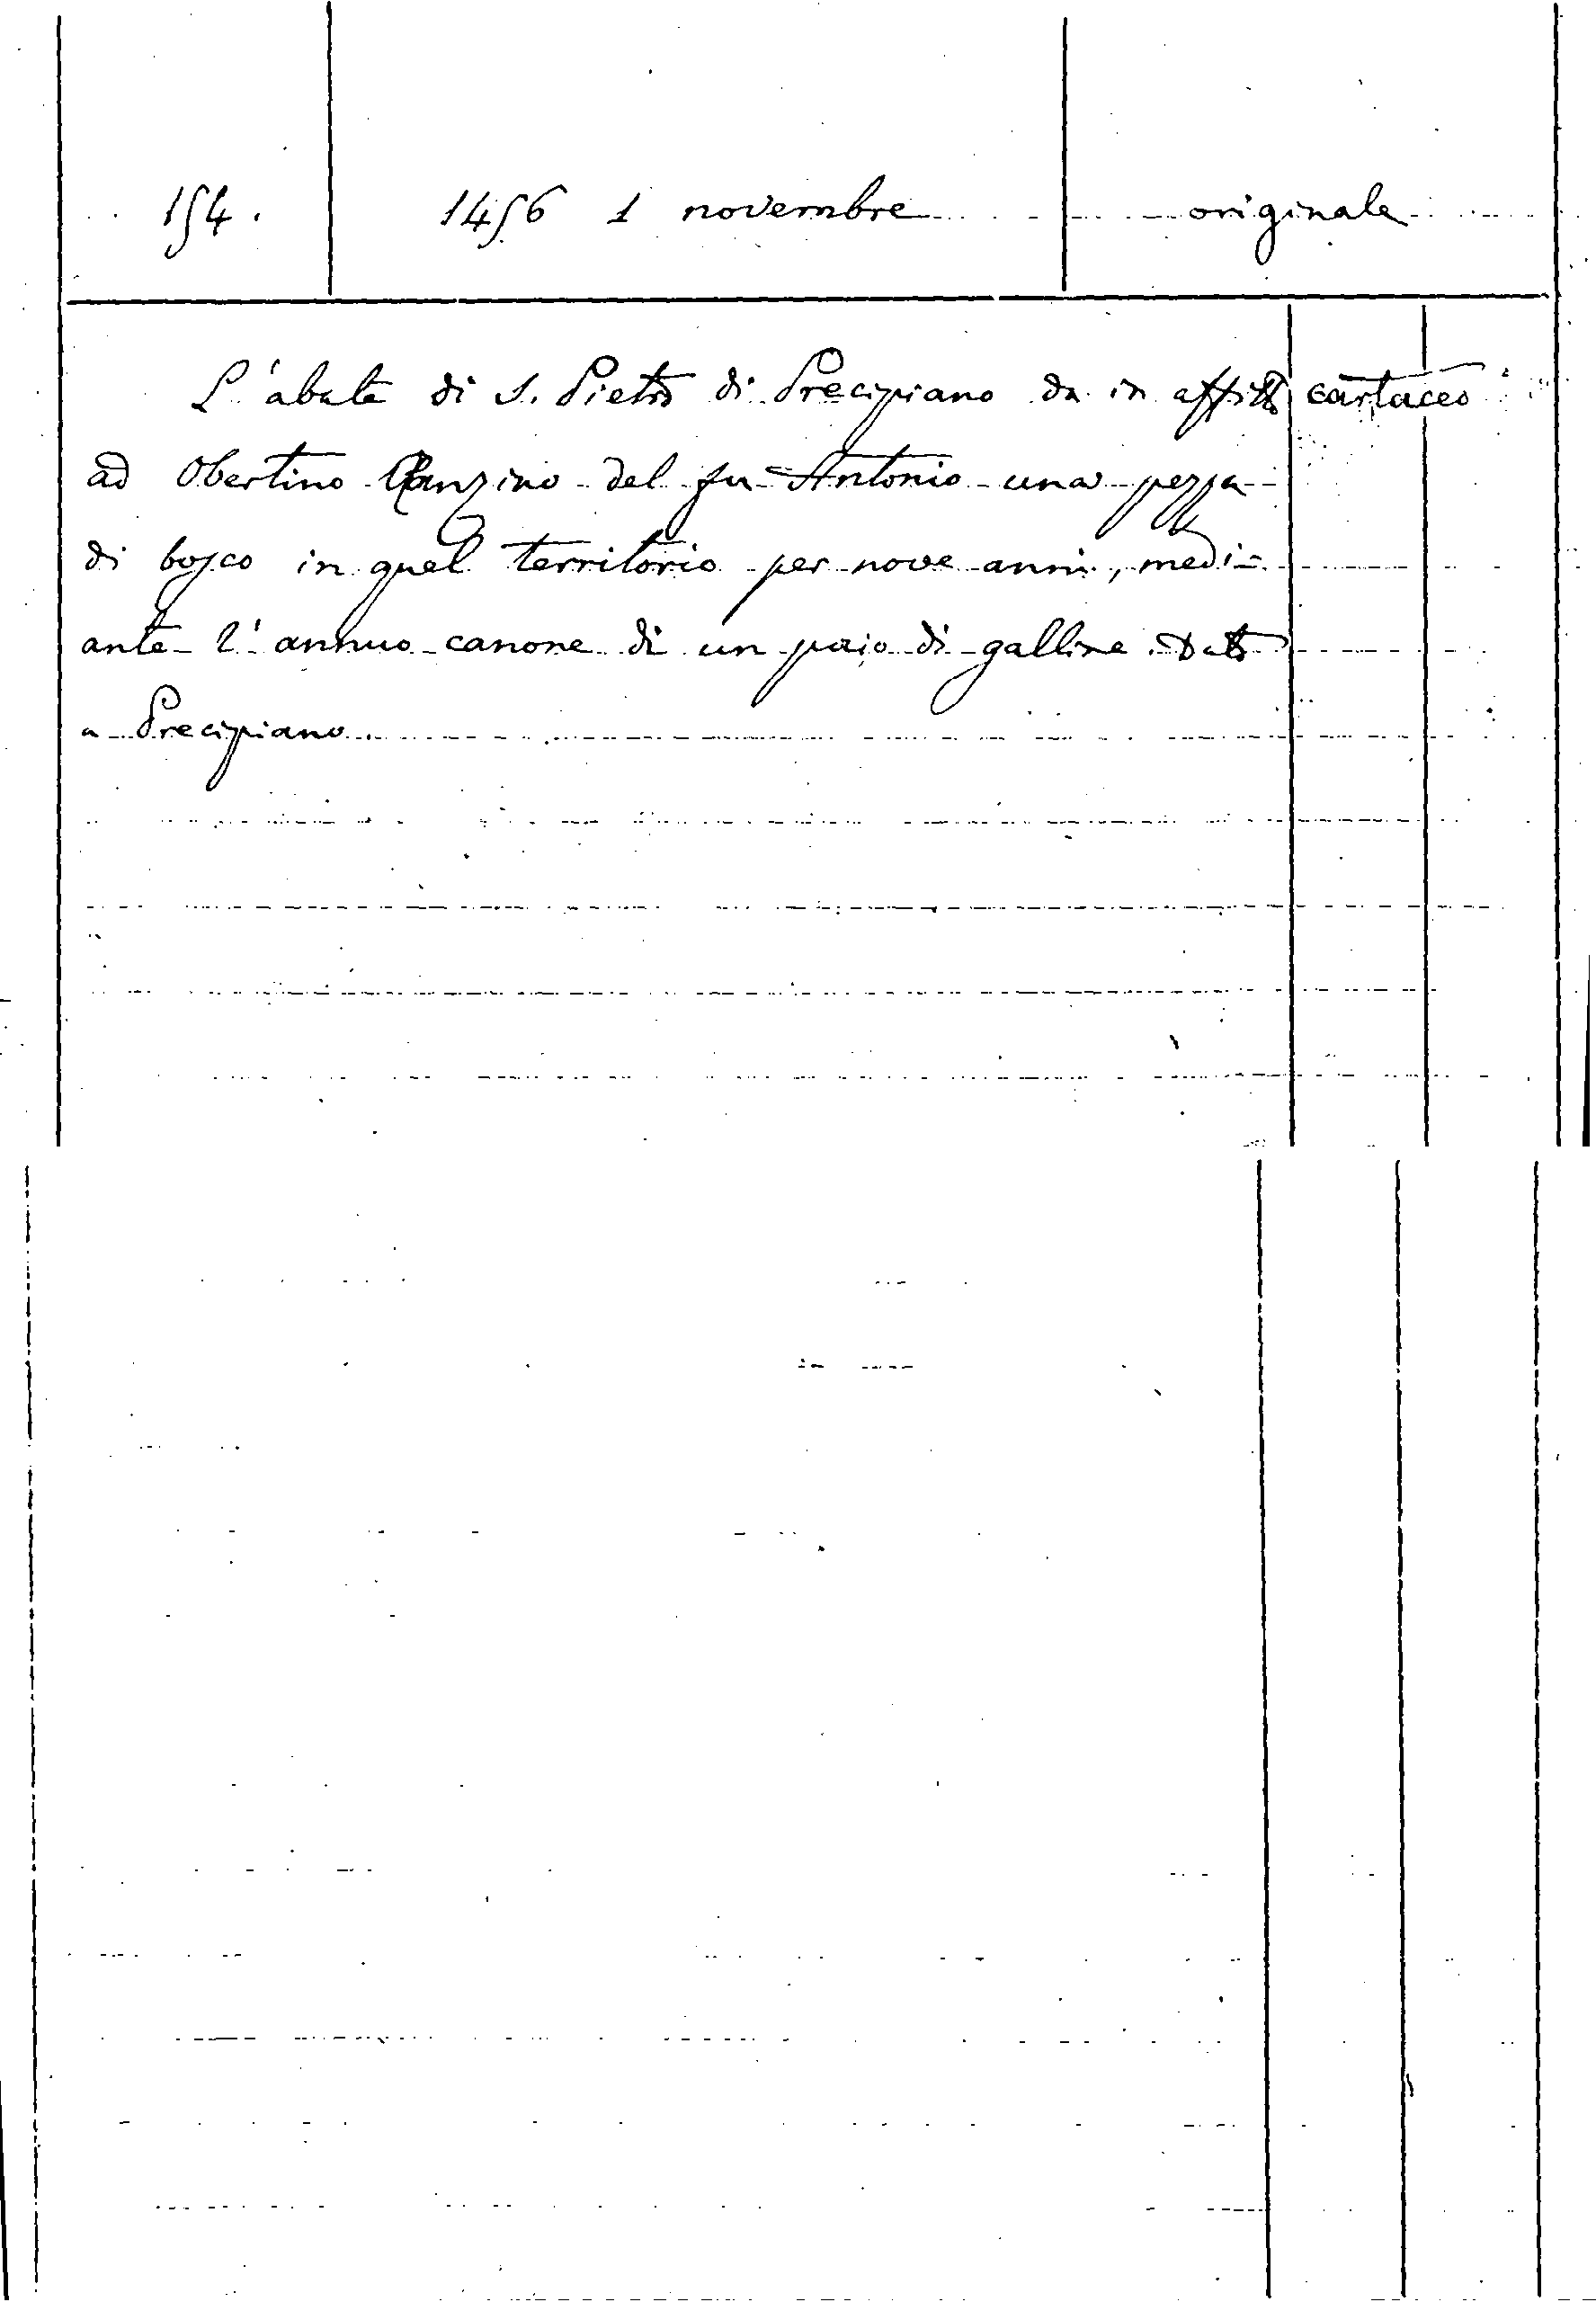 154. 1456 1 novembre originale
L'abate di S. Pietro di Precipiano da in affitto cartaceo
ad Obertino del fu Antonio una pezza
di bosco in quel territorio per nove anni, medi-
ante l'annuo canone di un paio di galline. Dato
a Precipiano.